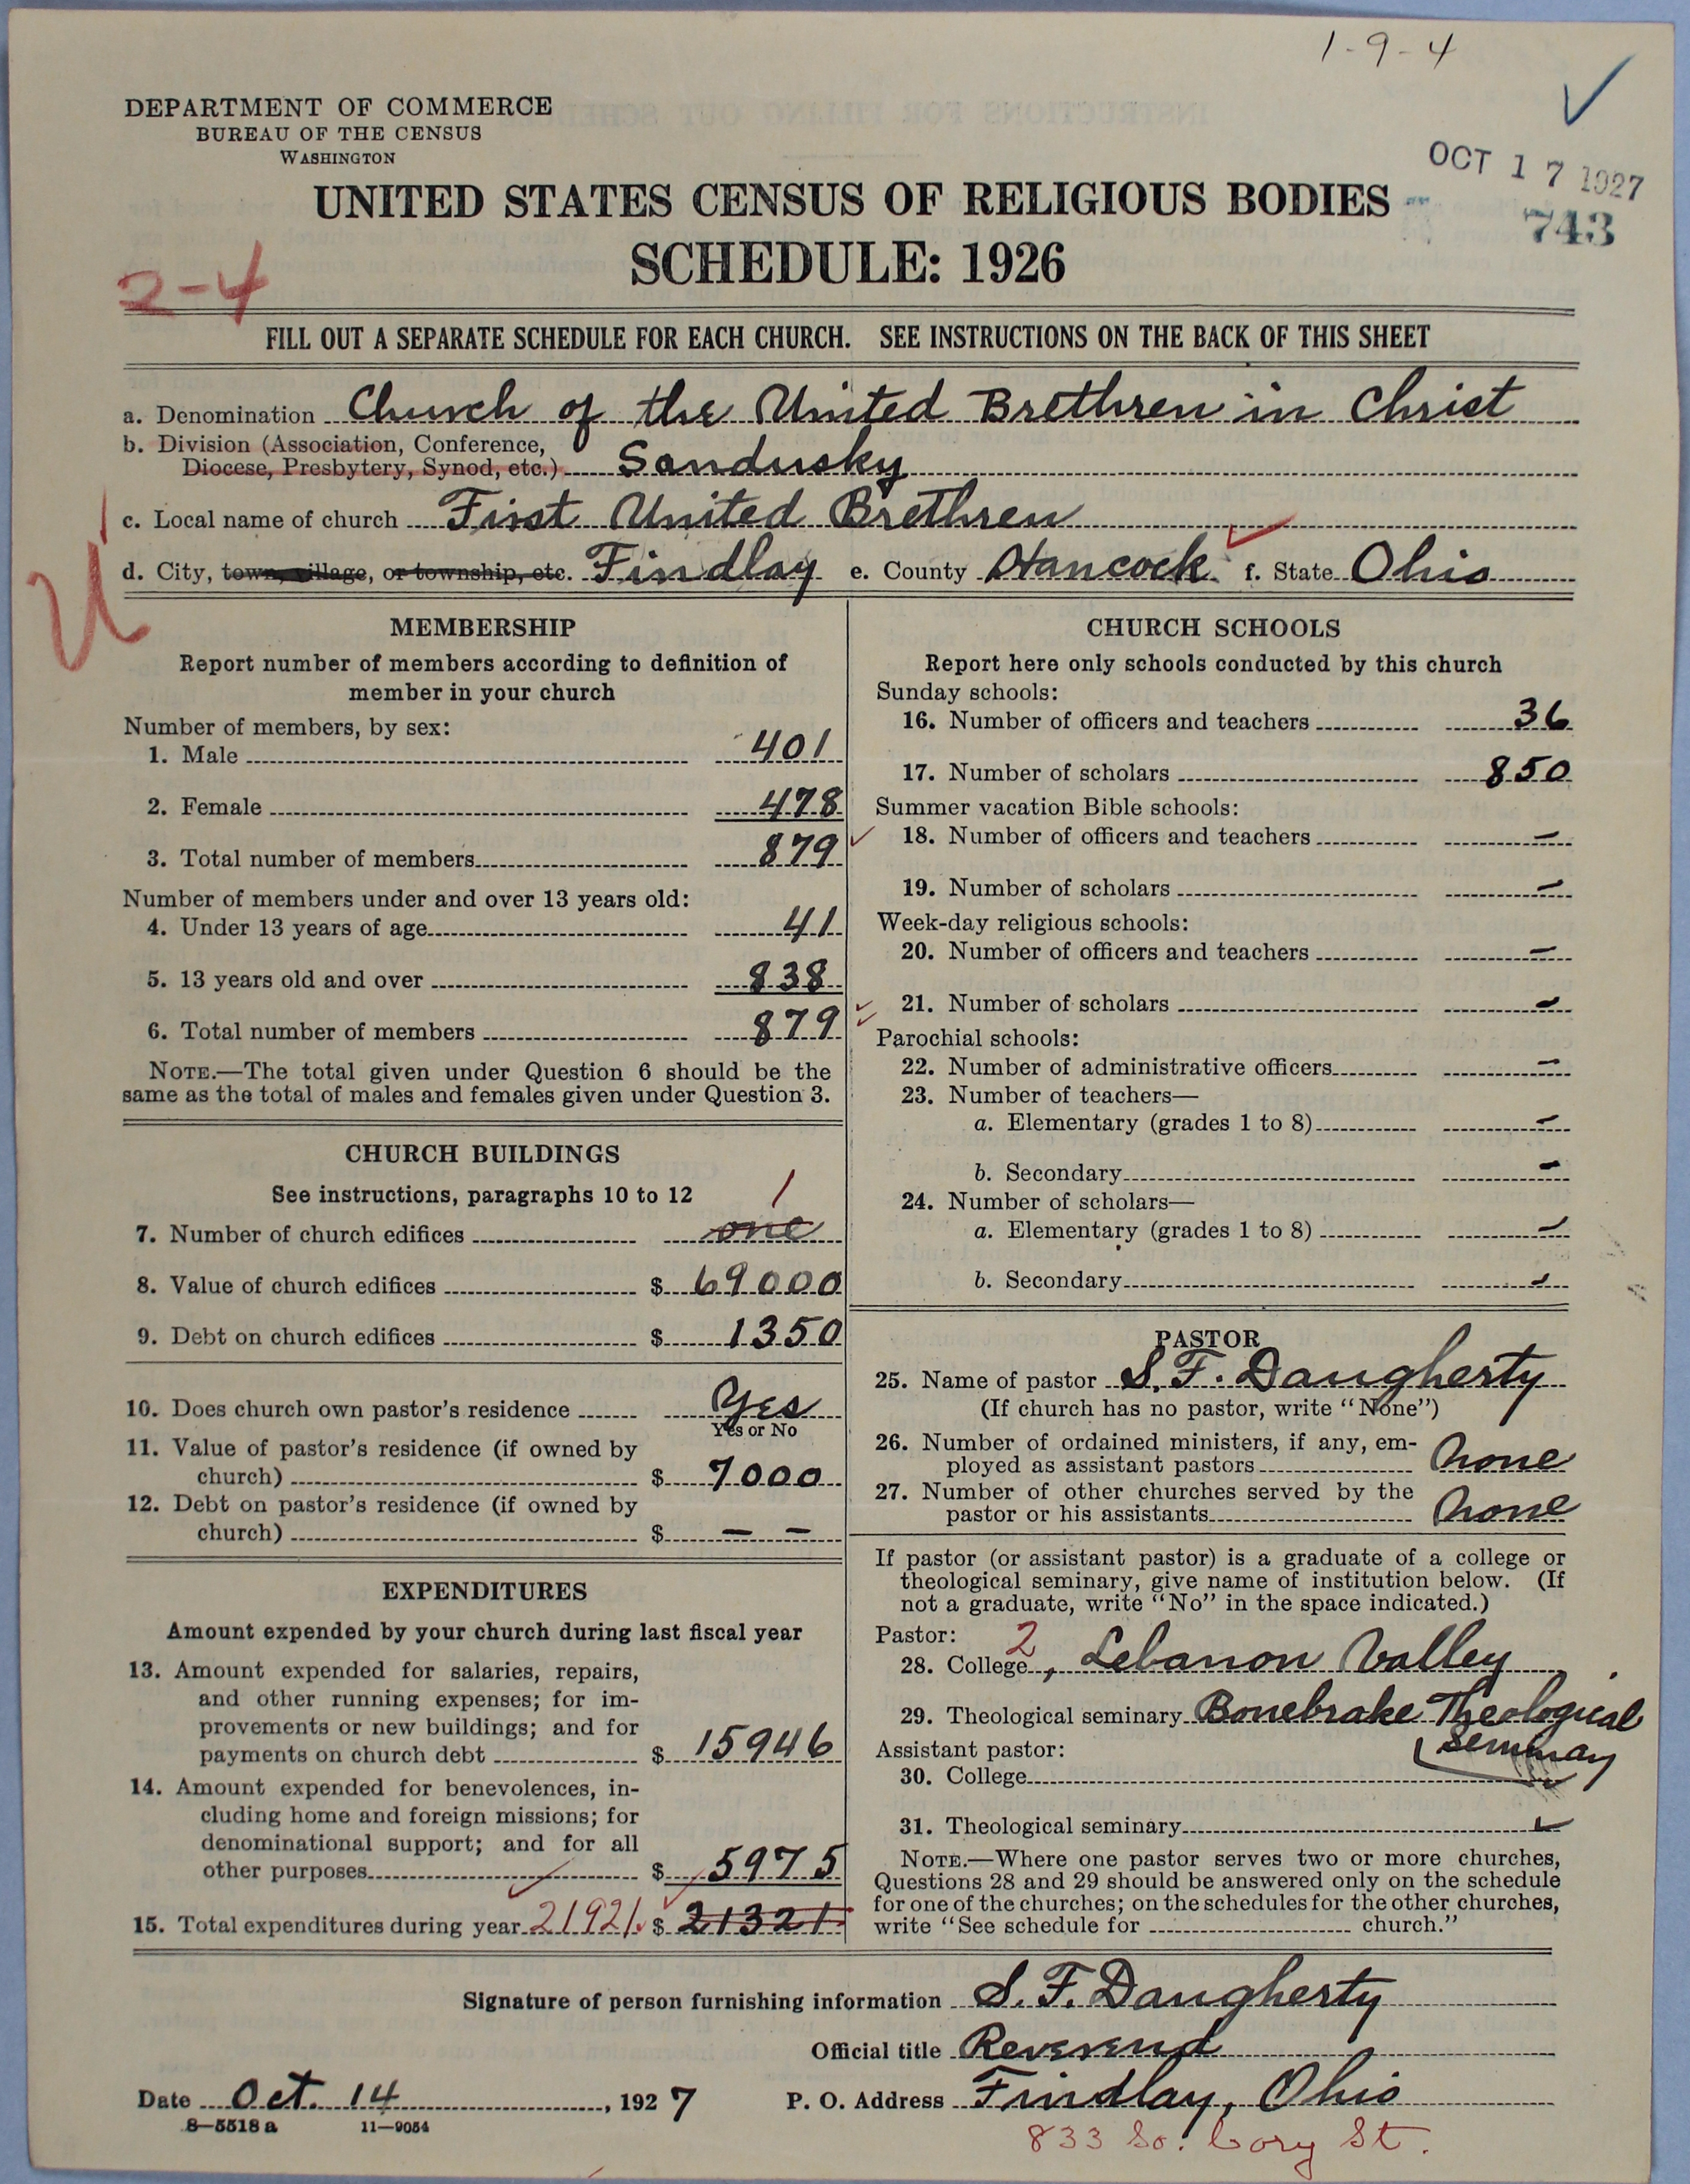 1-9-4
DEPARTMENT OF COMMERCE
BUREAU OF THE CENSUS
WASHINGTON
OCT 17 1927
743
UNITED STATES CENSUS OF RELIGIOUS BODIES
SCHEDULE: 1926
2-4
FILL OUT A SEPARATE SCHEDULE FOR EACH CHURCH. SEE INSTRUCTIONS ON THE BACK OF THIS SHEET
a. Denomination Church of the United Brethren in Christ
b. Division (Association, Conference,
Diocese, Presbytery, Synod, etc.) Sandusky
c. Local name of church First United Brethren
d. City, town, village, or township, etc. Findlay e. County Hancock f. State Ohio
MEMBERSHIP
Report number of members according to definition of
member in your church
Number of members, by sex:
1. Male 401
2. Female 478
3. Total number of members 879
Number of members under and over 13 years old:
4. Under 13 years of age 41
5. 13 years old and over 838
6. Total number of members 879
NOTE.—The total given under Question 6 should be the
same as the total of males and females given under Question 3.
CHURCH BUILDINGS
See instructions, paragraphs 10 to 12
1
7. Number of church edifices one
8. Value of church edifices $ 69000
9. Debt on church edifices $ 1350
10. Does church own pastor's residence Yes
Yes or No
11. Value of pastor's residence (if owned by
church) $ 7000
12. Debt on pastor's residence (if owned by
church) $ — —
EXPENDITURES
Amount expended by your church during last fiscal year
13. Amount expended for salaries, repairs,
and other running expenses; for im-
provements or new buildings; and for
payments on church debt $ 15946
14. Amount expended for benevolences, in-
cluding home and foreign missions; for
denominational support; and for all
other purposes $ 5975
15. Total expenditures during year 21921 $ 21321
CHURCH SCHOOLS
Report here only schools conducted by this church
Sunday schools:
16. Number of officers and teachers 36
17. Number of scholars 850
Summer vacation Bible schools:
18. Number of officers and teachers —
19. Number of scholars —
Week-day religious schools:
20. Number of officers and teachers —
21. Number of scholars —
Parochial schools:
22. Number of administrative officers —
23. Number of teachers—
a. Elementary (grades 1 to 8) —
b. Secondary —
24. Number of scholars—
a. Elementary (grades 1 to 8) —
b. Secondary —
PASTOR
25. Name of pastor S. F. Daugherty
(If church has no pastor, write "None")
26. Number of ordained ministers, if any, em-
ployed as assistant pastors none
27. Number of other churches served by the
pastor or his assistants none
If pastor (or assistant pastor) is a graduate of a college or
theological seminary, give name of institution below. (If
not a graduate, write "No" in the space indicated.)
Pastor: 2
28. College, Lebanon Valley
29. Theological seminary Bonebrake Theological
Seminary
Assistant pastor:
30. College
31. Theological seminary
NOTE.—Where one pastor serves two or more churches,
Questions 28 and 29 should be answered only on the schedule
for one of the churches; on the schedules for the other churches,
write "See schedule for church."
Signature of person furnishing information S. F. Daugherty
Official title Reverend
Date Oct. 14, 1927 P. O. Address Findlay, Ohio
8—5518 a 11—9054
833 So. Cory St.